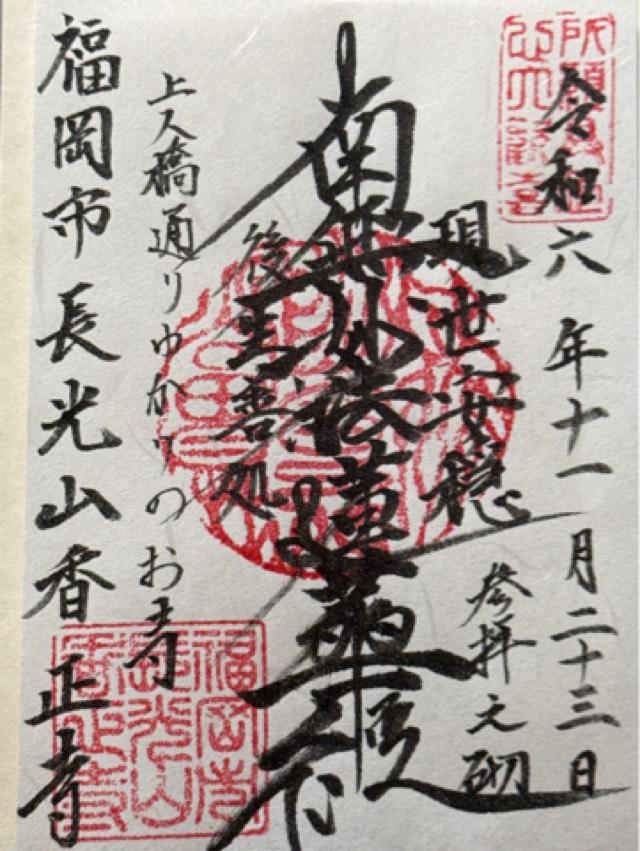 令和六年十一月二十三日
参拝之砌
現世安穏
南無妙法蓮華経
後生善処
上人橋通りゆかりのお寺
福岡市 長光山香正寺
福岡市
長光山
香正寺